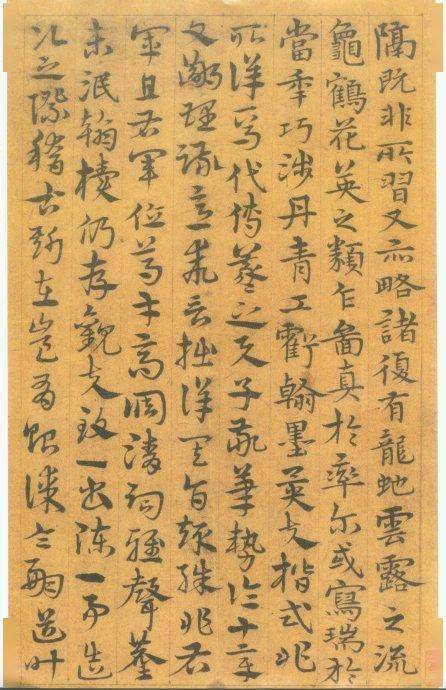 隔既非所習又亦略諸復有龍虵雲露之流
龜鶴花英之類乍圖真於率尔或寫瑞於
當年巧涉丹青工虧翰墨異夫楷式非
所詳焉代傳羲之与子敬筆勢論十章
文鄙理疎意乖言拙詳其旨趣殊非右
軍且右軍位重才高調清詞雅聲塵
未泯翰櫝仍存觀夫致一書陳一事造
次之際稽古斯在豈有貽謀令嗣道叶